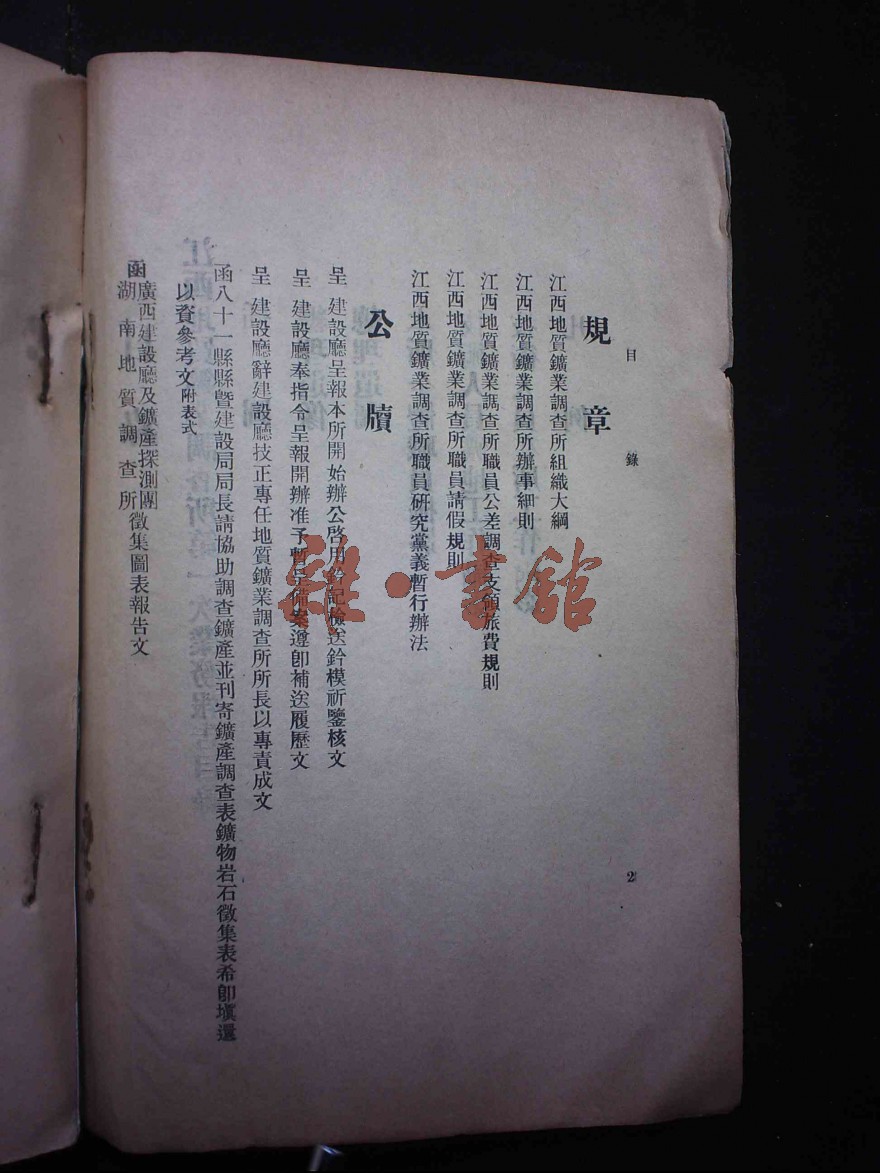 目錄
2
規章
江西地質鑛業調查所組織大綱
江西地質鑛業調查所辦事細則
江西地質鑛業調查所職員公差調查支領旅費規則
江西地質鑛業調查所職員請假規則
江西地質鑛業調查所職員研究黨義暫行辦法
公牘
呈 建設廳呈報本所開始辦公啓用鈐記檢送鈐模祈鑒核文
呈 建設廳奉指令呈報開辦准予暫呈備案遵卽補送履歷文
呈 建設廳辭建設廳技正專任地質鑛業調查所所長以專責成文
函八十一縣縣暨建設局局長請協助調查鑛產並刊寄鑛產調查表鑛物岩石徵集表希卽塡還
以資參考文附表式
函廣西建設廳及鑛產探測團
湖南地質調查所徵集圖表報告文
雜·書館